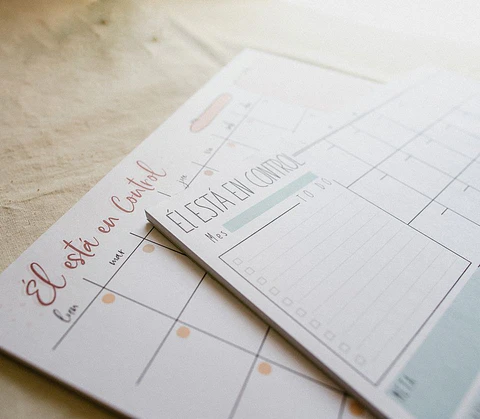 Él está en Control
lun
mar
ÉL ESTÁ EN CONTROL
Mes
TO DO